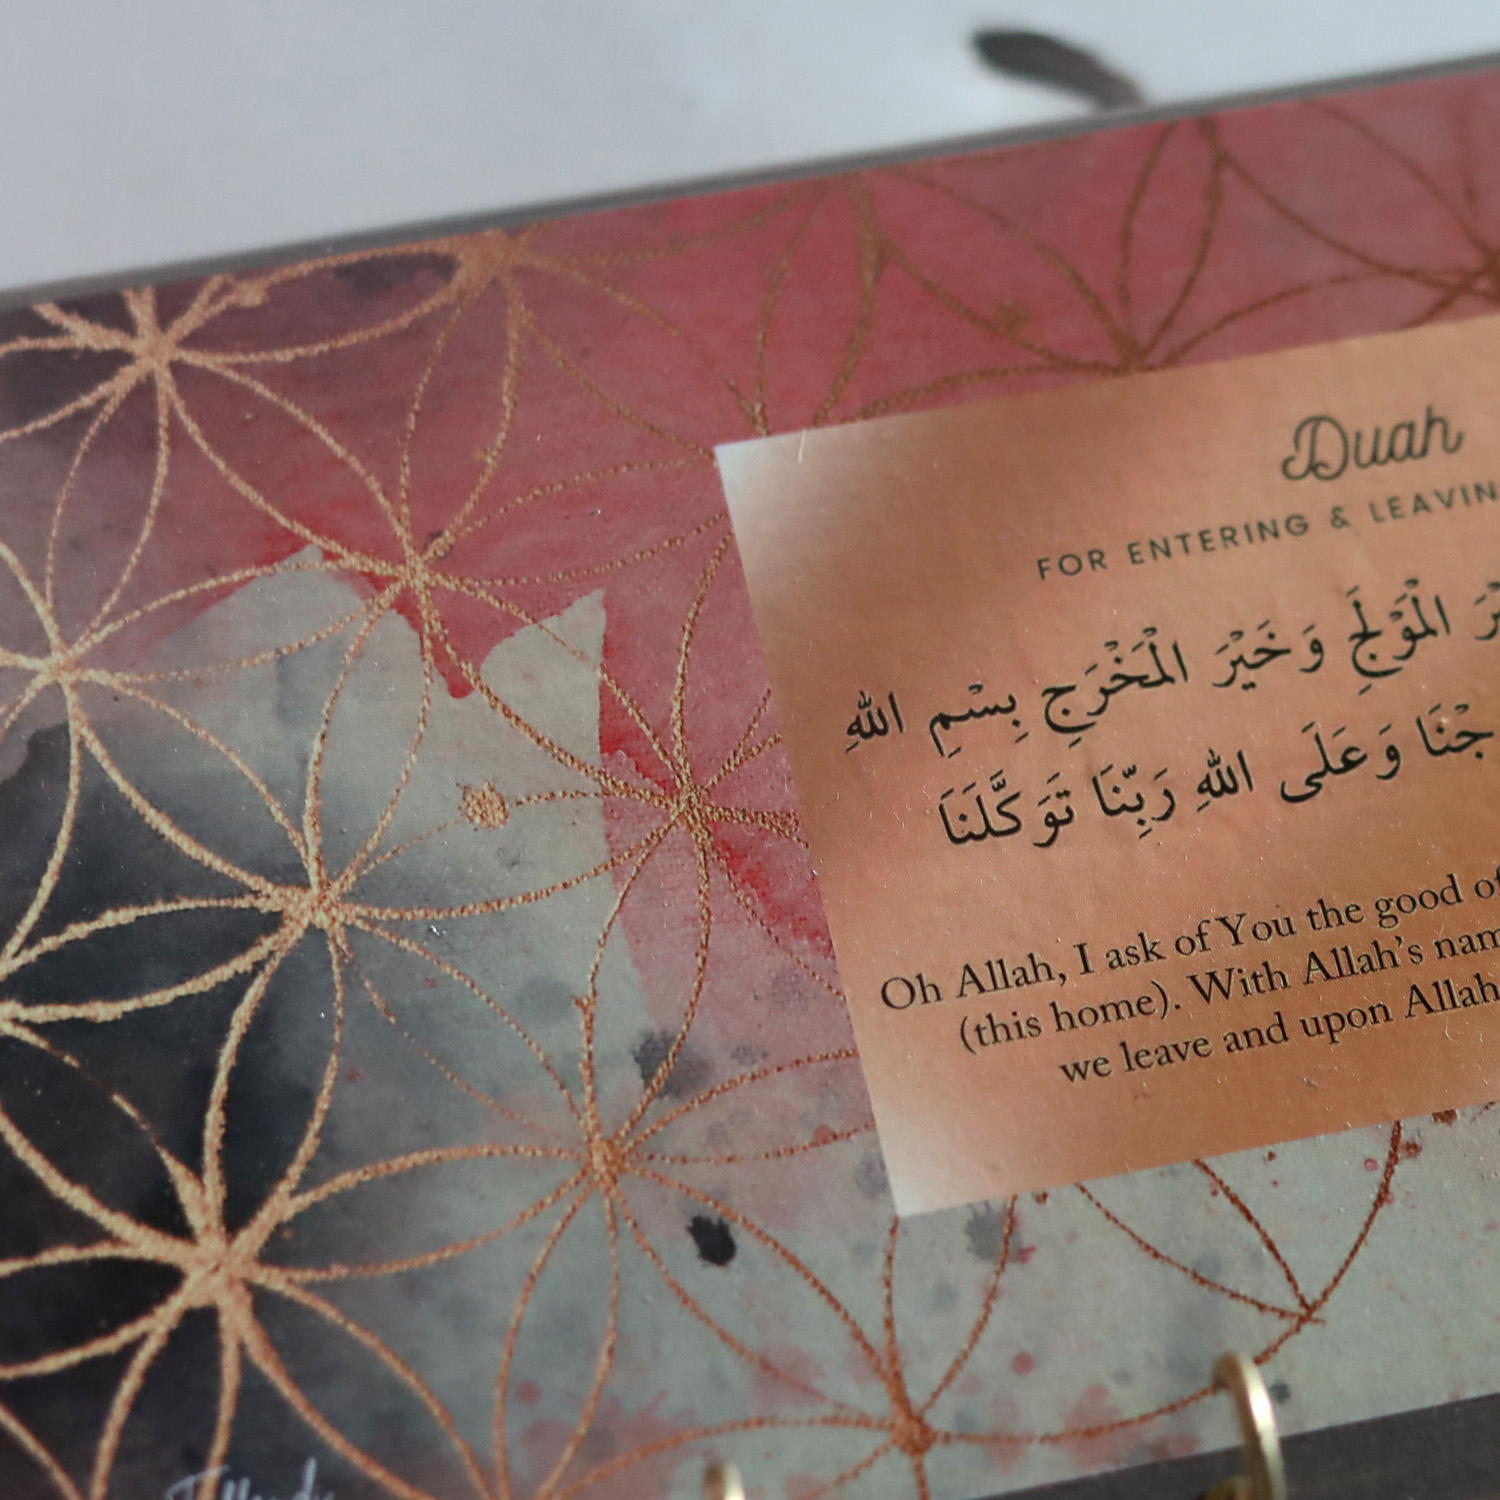 Duah
FOR ENTERING & LEAVIN
الْمَوْلَجِ وَخَيْرَ الْمَخْرَجِ بِسْمِ اللهِ
جْنَا وَعَلَى اللهِ رَبِّنَا تَوَكَّلَنَا
Oh Allah, I ask of You the good of
(this home). With Allah's nam
we leave and upon Allah